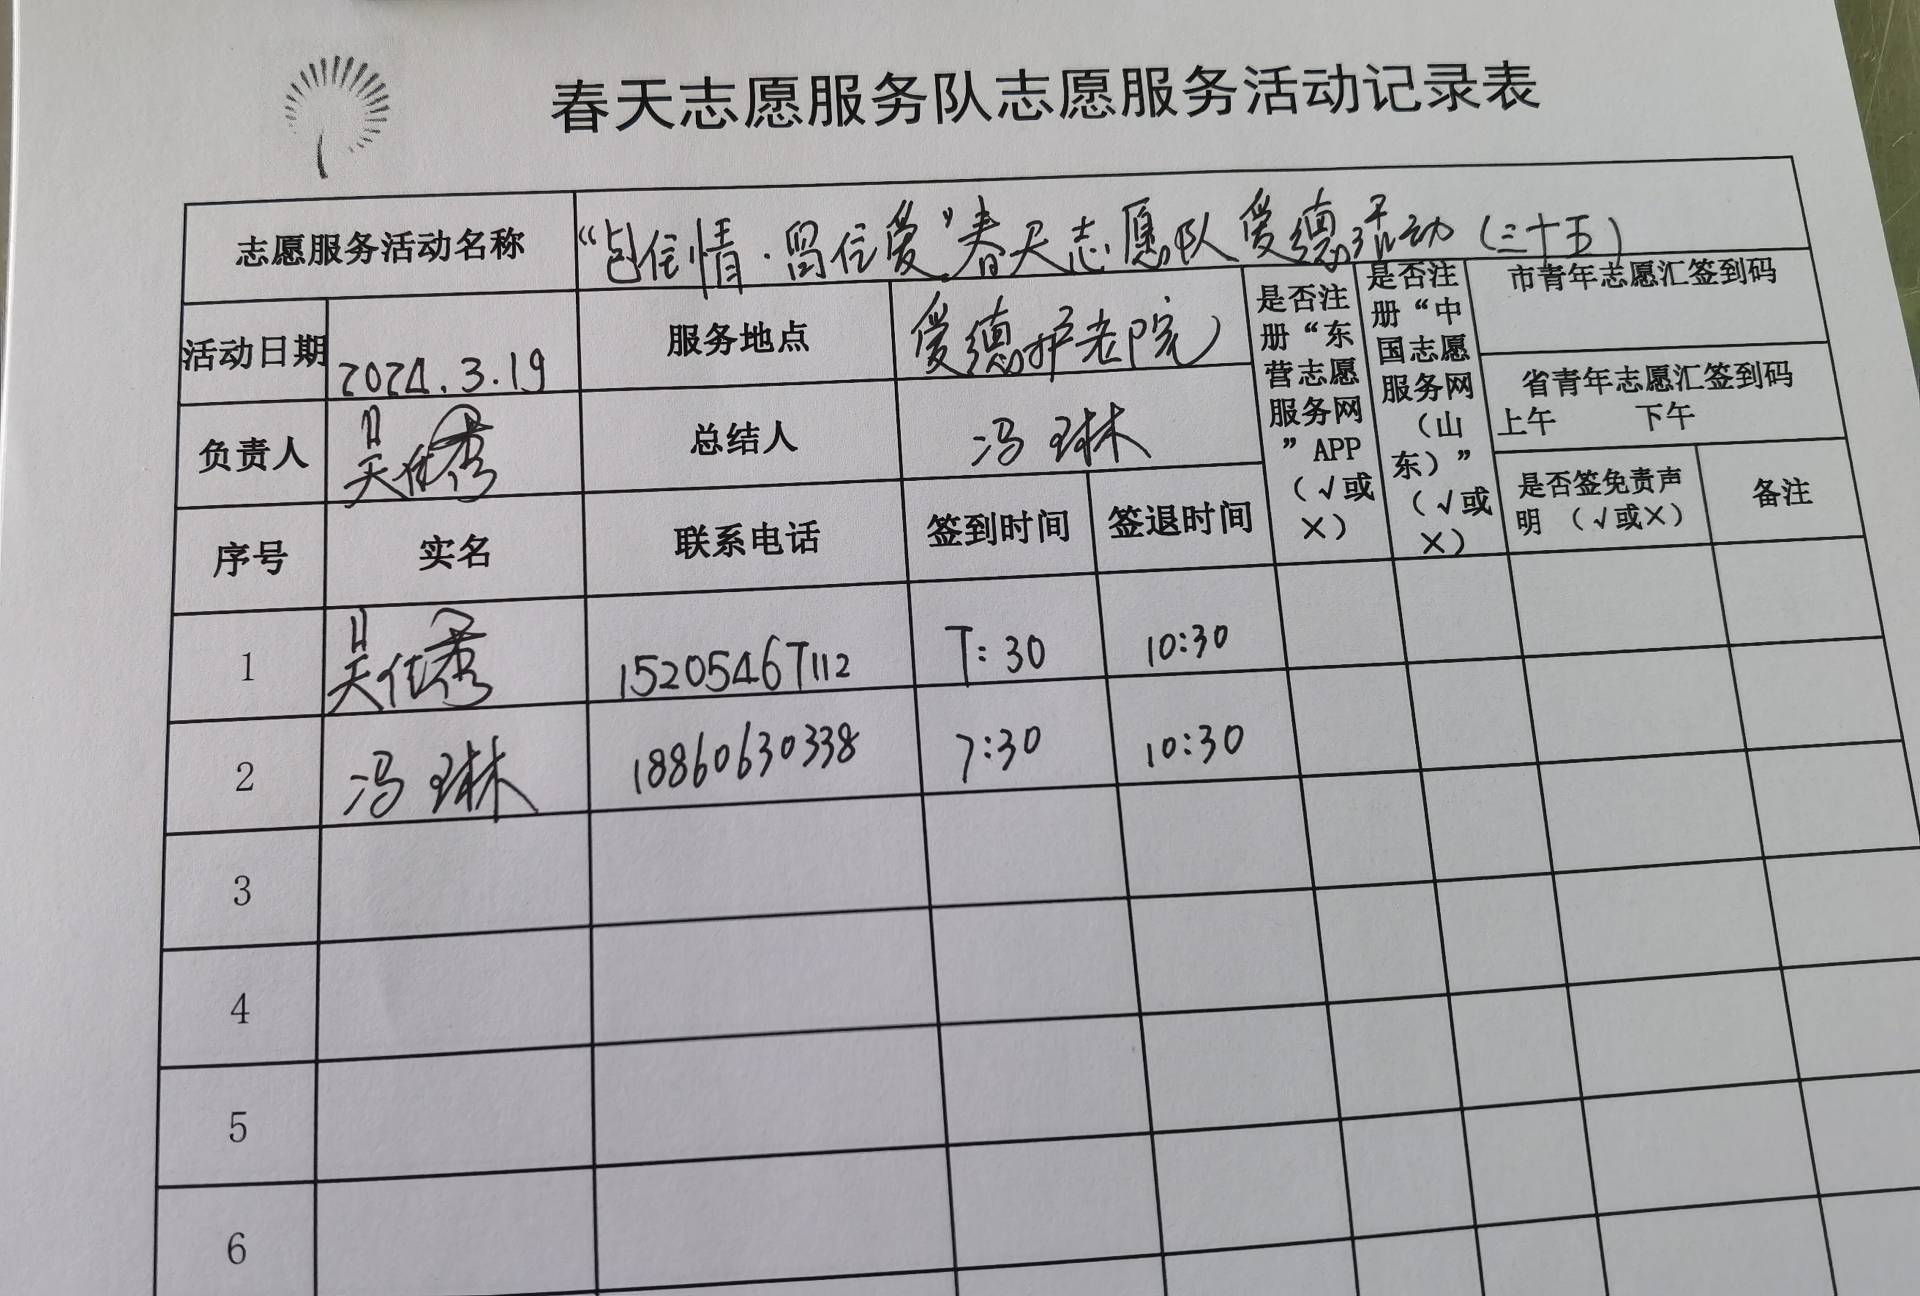 春天志愿服务队志愿服务活动记录表
志愿服务活动名称 “包住情·留住爱”春天志愿队爱德活动（三十五）
活动日期 2024.3.19 服务地点 爱德护老院
是否注册“东营志愿服务网”APP（√或×）
是否注册“中国志愿服务网（山东）”（√或×）
市青年志愿汇签到码
省青年志愿汇签到码
上午 下午
负责人 吴佳秀 总结人 冯琳
序号 实名 联系电话 签到时间 签退时间 是否签免责声明（√或×） 备注
1 吴佳秀 15205467112 7:30 10:30
2 冯琳 18860630338 7:30 10:30
3
4
5
6